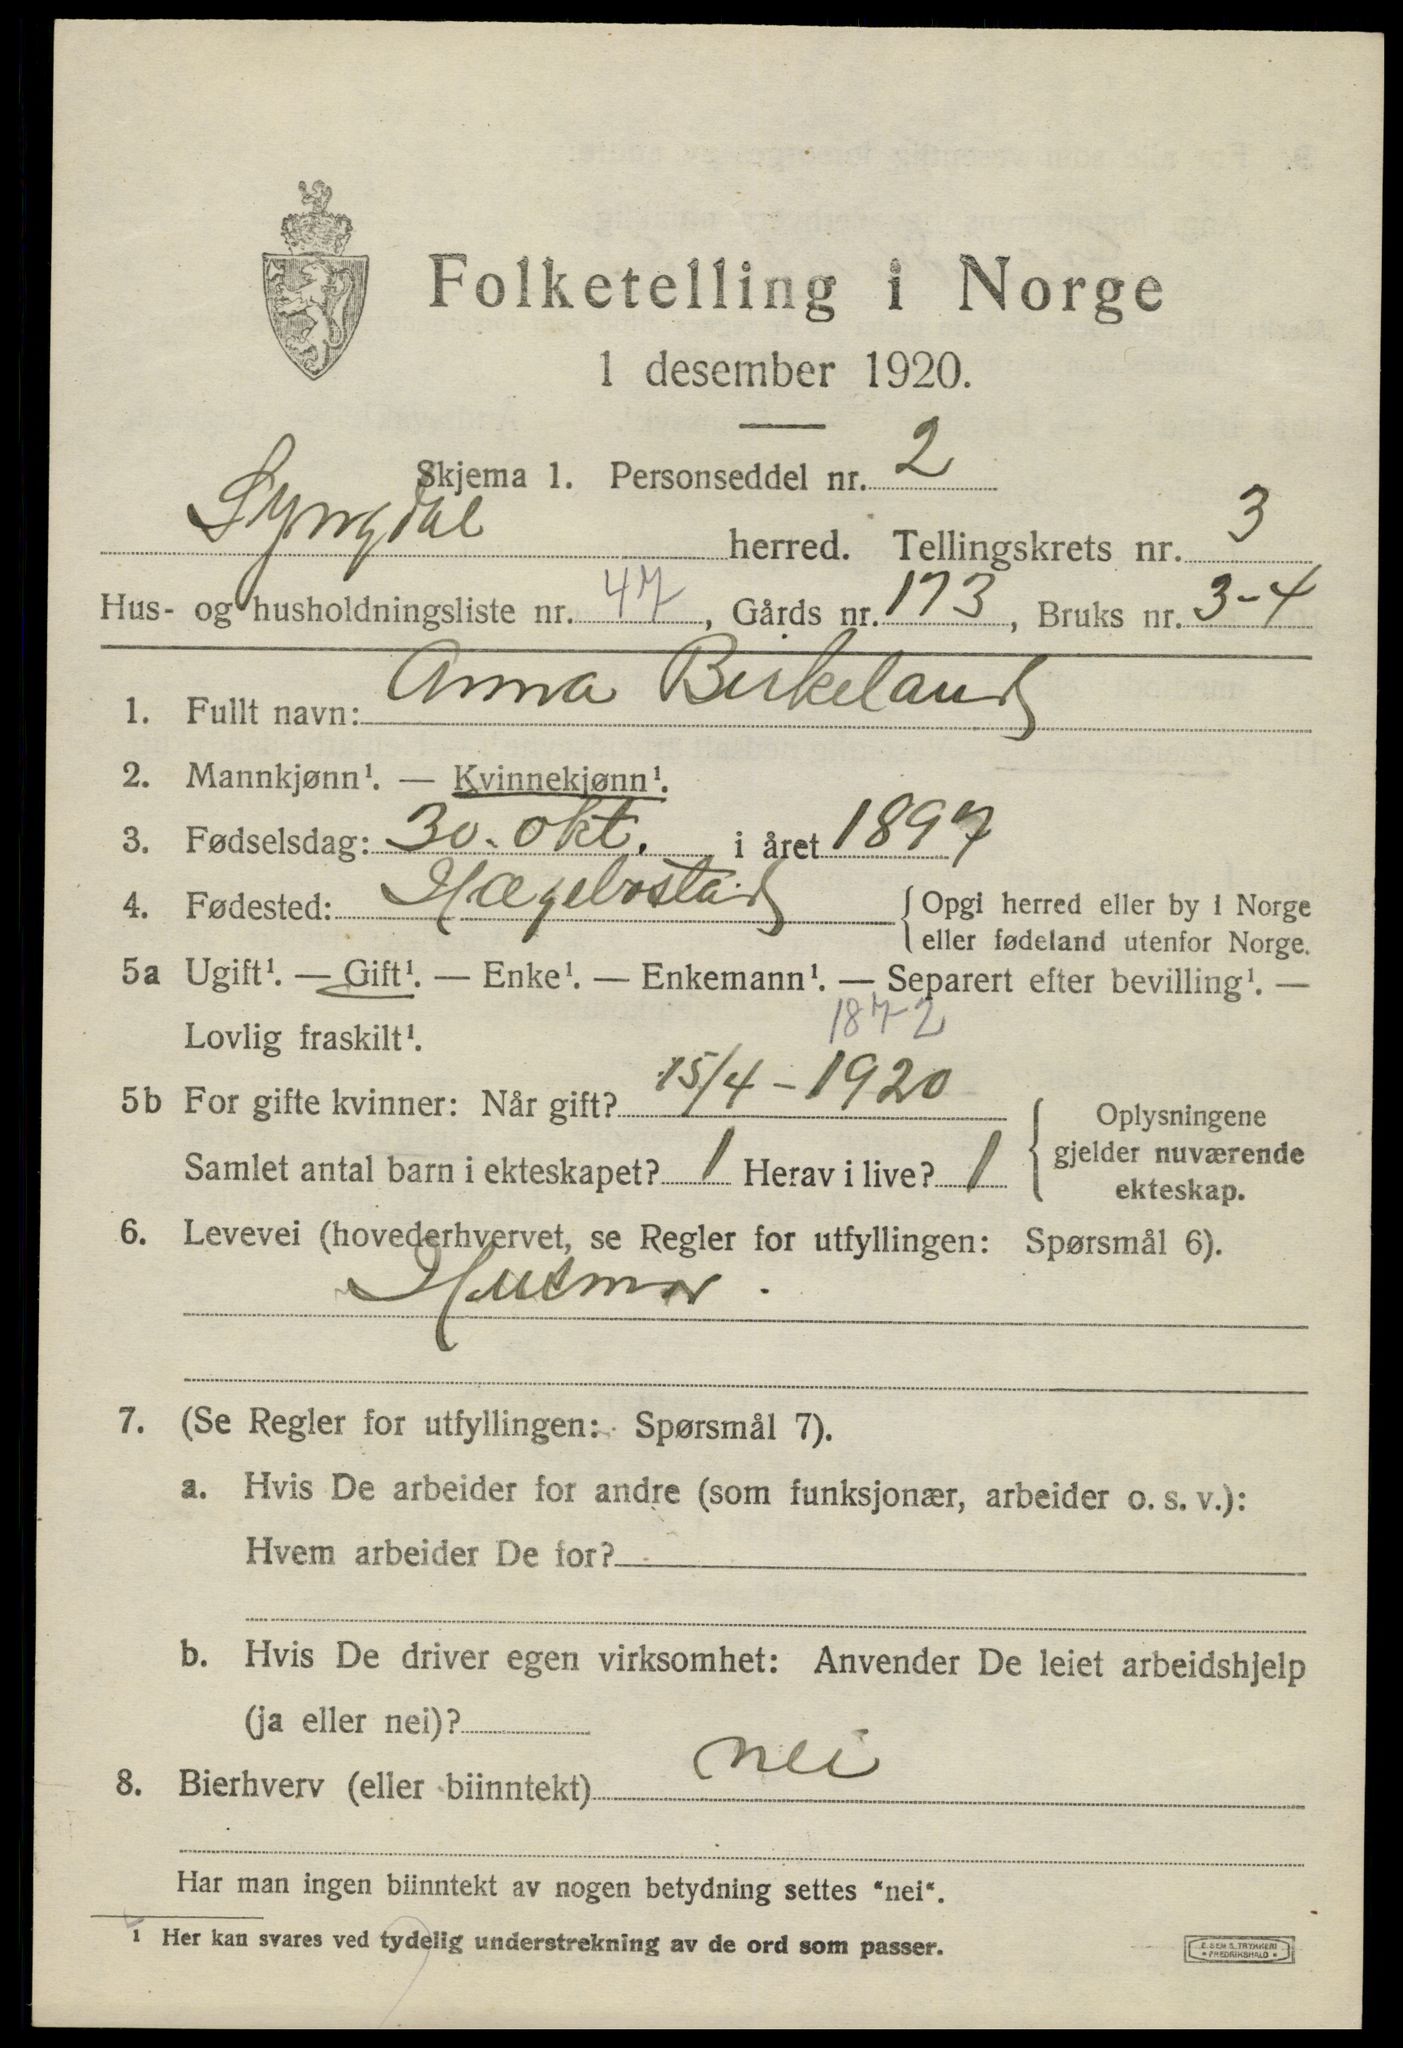 Folketelling i Norge
1 desember 1920.
Skjema 1. Personseddel nr. 2
Lyngdal herred. Tellingskrets nr. 3
Hus- og husholdningsliste nr. 47, Gårds nr. 173, Bruks nr. 3-4
1. Fullt navn: Anna Birkeland
2. Mannkjønn¹. — Kvinnekjønn¹.
3. Fødselsdag: 30. okt. i året 1897
4. Fødested: Hægebostad { Opgi herred eller by i Norge
eller fødeland utenfor Norge.
5a Ugift¹. — Gift¹. — Enke¹. — Enkemann¹. — Separert efter bevilling¹. —
Lovlig fraskilt¹.
1872
5b For gifte kvinner: Når gift? 15/4 - 1920
Samlet antal barn i ekteskapet? 1 Herav i live? 1
Oplysningene
gjelder nuværende
ekteskap.
6. Levevei (hovederhvervet, se Regler for utfyllingen: Spørsmål 6).
Husmor.
7. (Se Regler for utfyllingen: Spørsmål 7).
a. Hvis De arbeider for andre (som funksjonær, arbeider o. s. v.):
Hvem arbeider De for?
b. Hvis De driver egen virksomhet: Anvender De leiet arbeidshjelp
(ja eller nei)?
8. Bierhverv (eller biinntekt) nei
Har man ingen biinntekt av nogen betydning settes "nei".
¹ Her kan svares ved tydelig understrekning av de ord som passer.
E. SEM S. TRYKKERI
* FREDRIKSHALD *